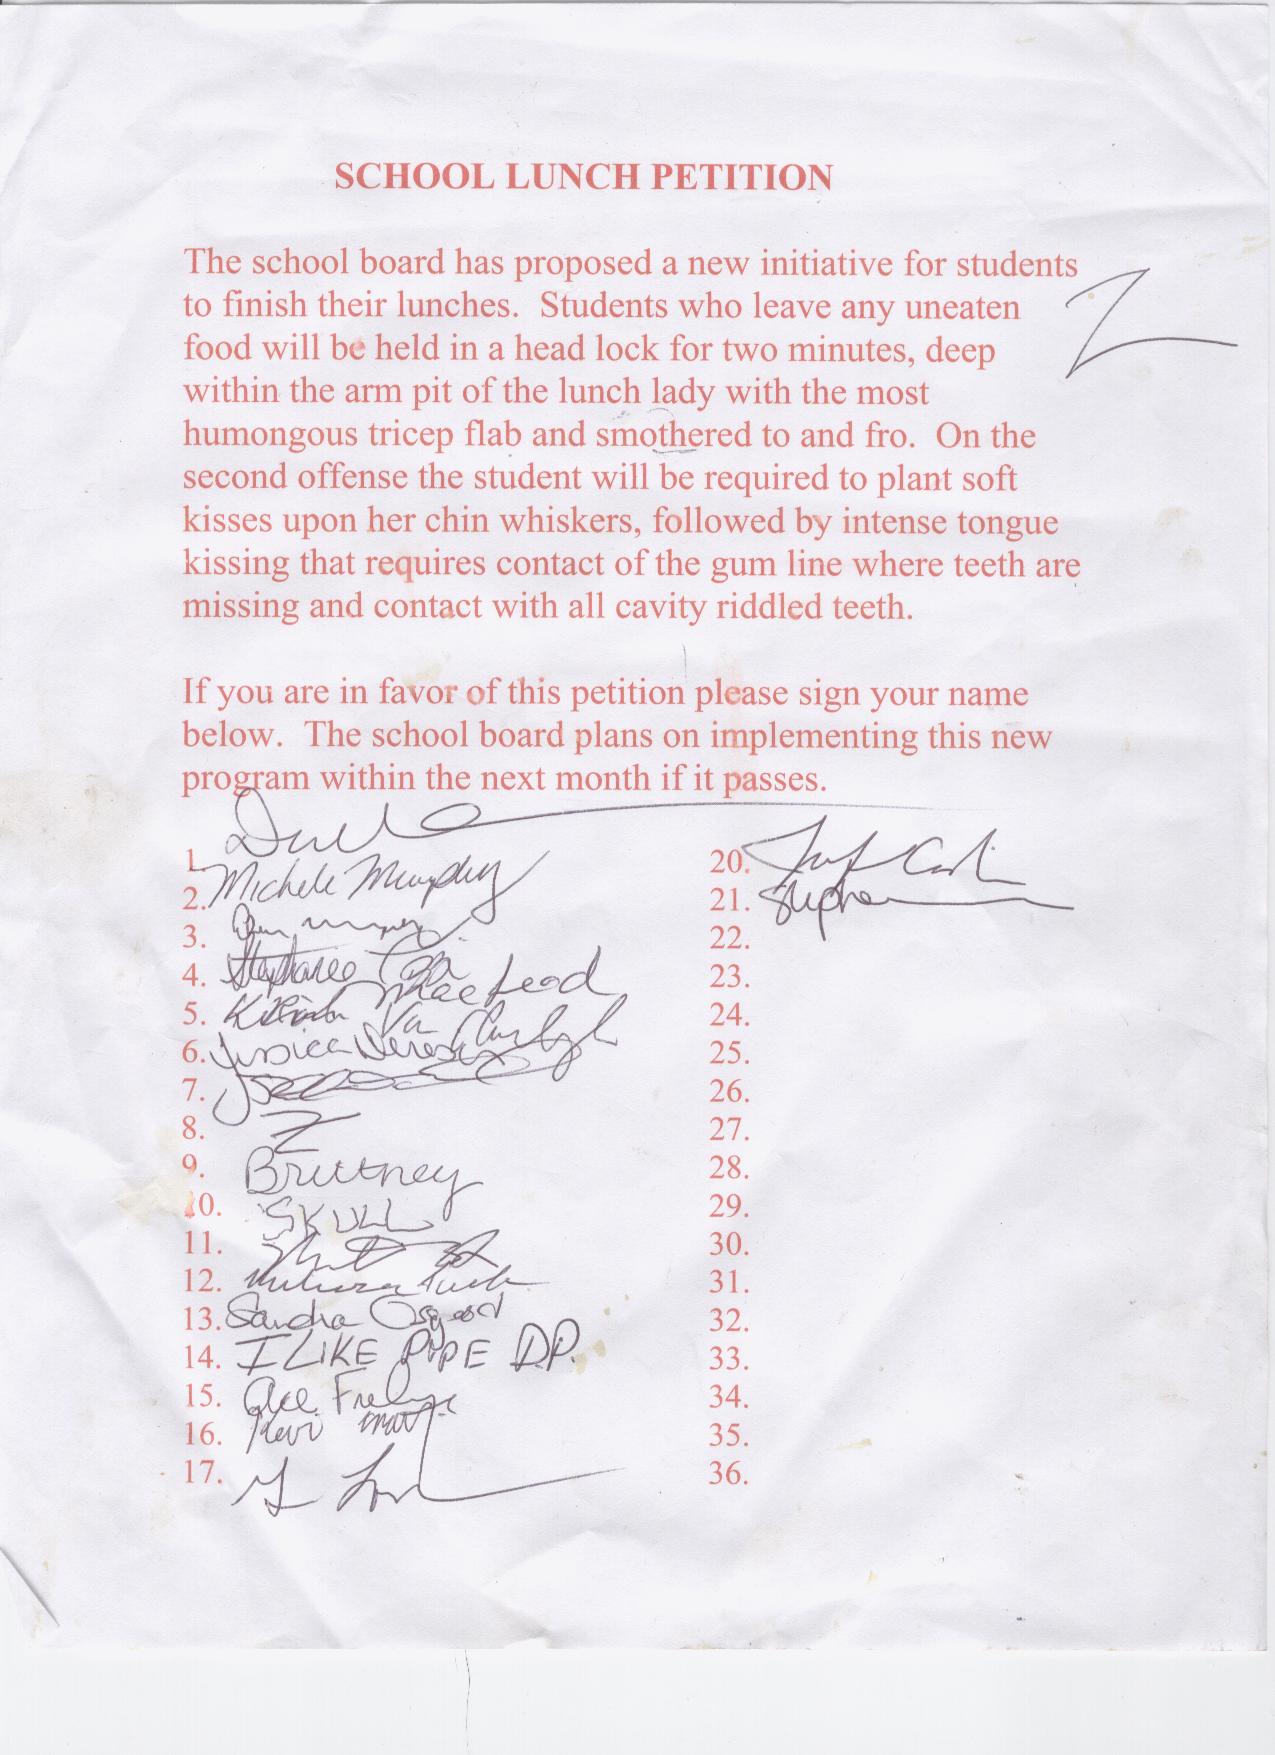 SCHOOL LUNCH PETITION
The school board has proposed a new initiative for students
to finish their lunches. Students who leave any uneaten
food will be held in a head lock for two minutes, deep
within the arm pit of the lunch lady with the most
humongous tricep flab and smothered to and fro. On the
second offense the student will be required to plant soft
kisses upon her chin whiskers, followed by intense tongue
kissing that requires contact of the gum line where teeth are
missing and contact with all cavity riddled teeth.
If you are in favor of this petition please sign your name
below. The school board plans on implementing this new
program within the next month if it passes.
1.
2. Michele Murphy
3.
4. Stephanee
5. MacLeod
6. Jessica
7.
8. Z
9. Brittney
10. SKULL
11.
12.
13. Sandra Osgood
14. I LIKE PIPE D.P.
15. Ace Frehley
16.
17.
20.
21.
22.
23.
24.
25.
26.
27.
28.
29.
30.
31.
32.
33.
34.
35.
36.